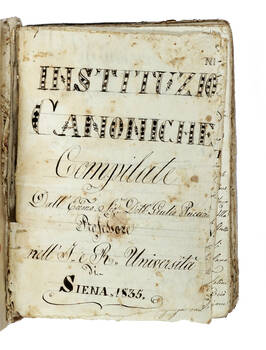 INSTITUZIO
NI
CANONICHE
Compilate
Dall' Sig. Dott. Giulio
Professore
nell' I. e R. Università
di
SIENA. 1835.